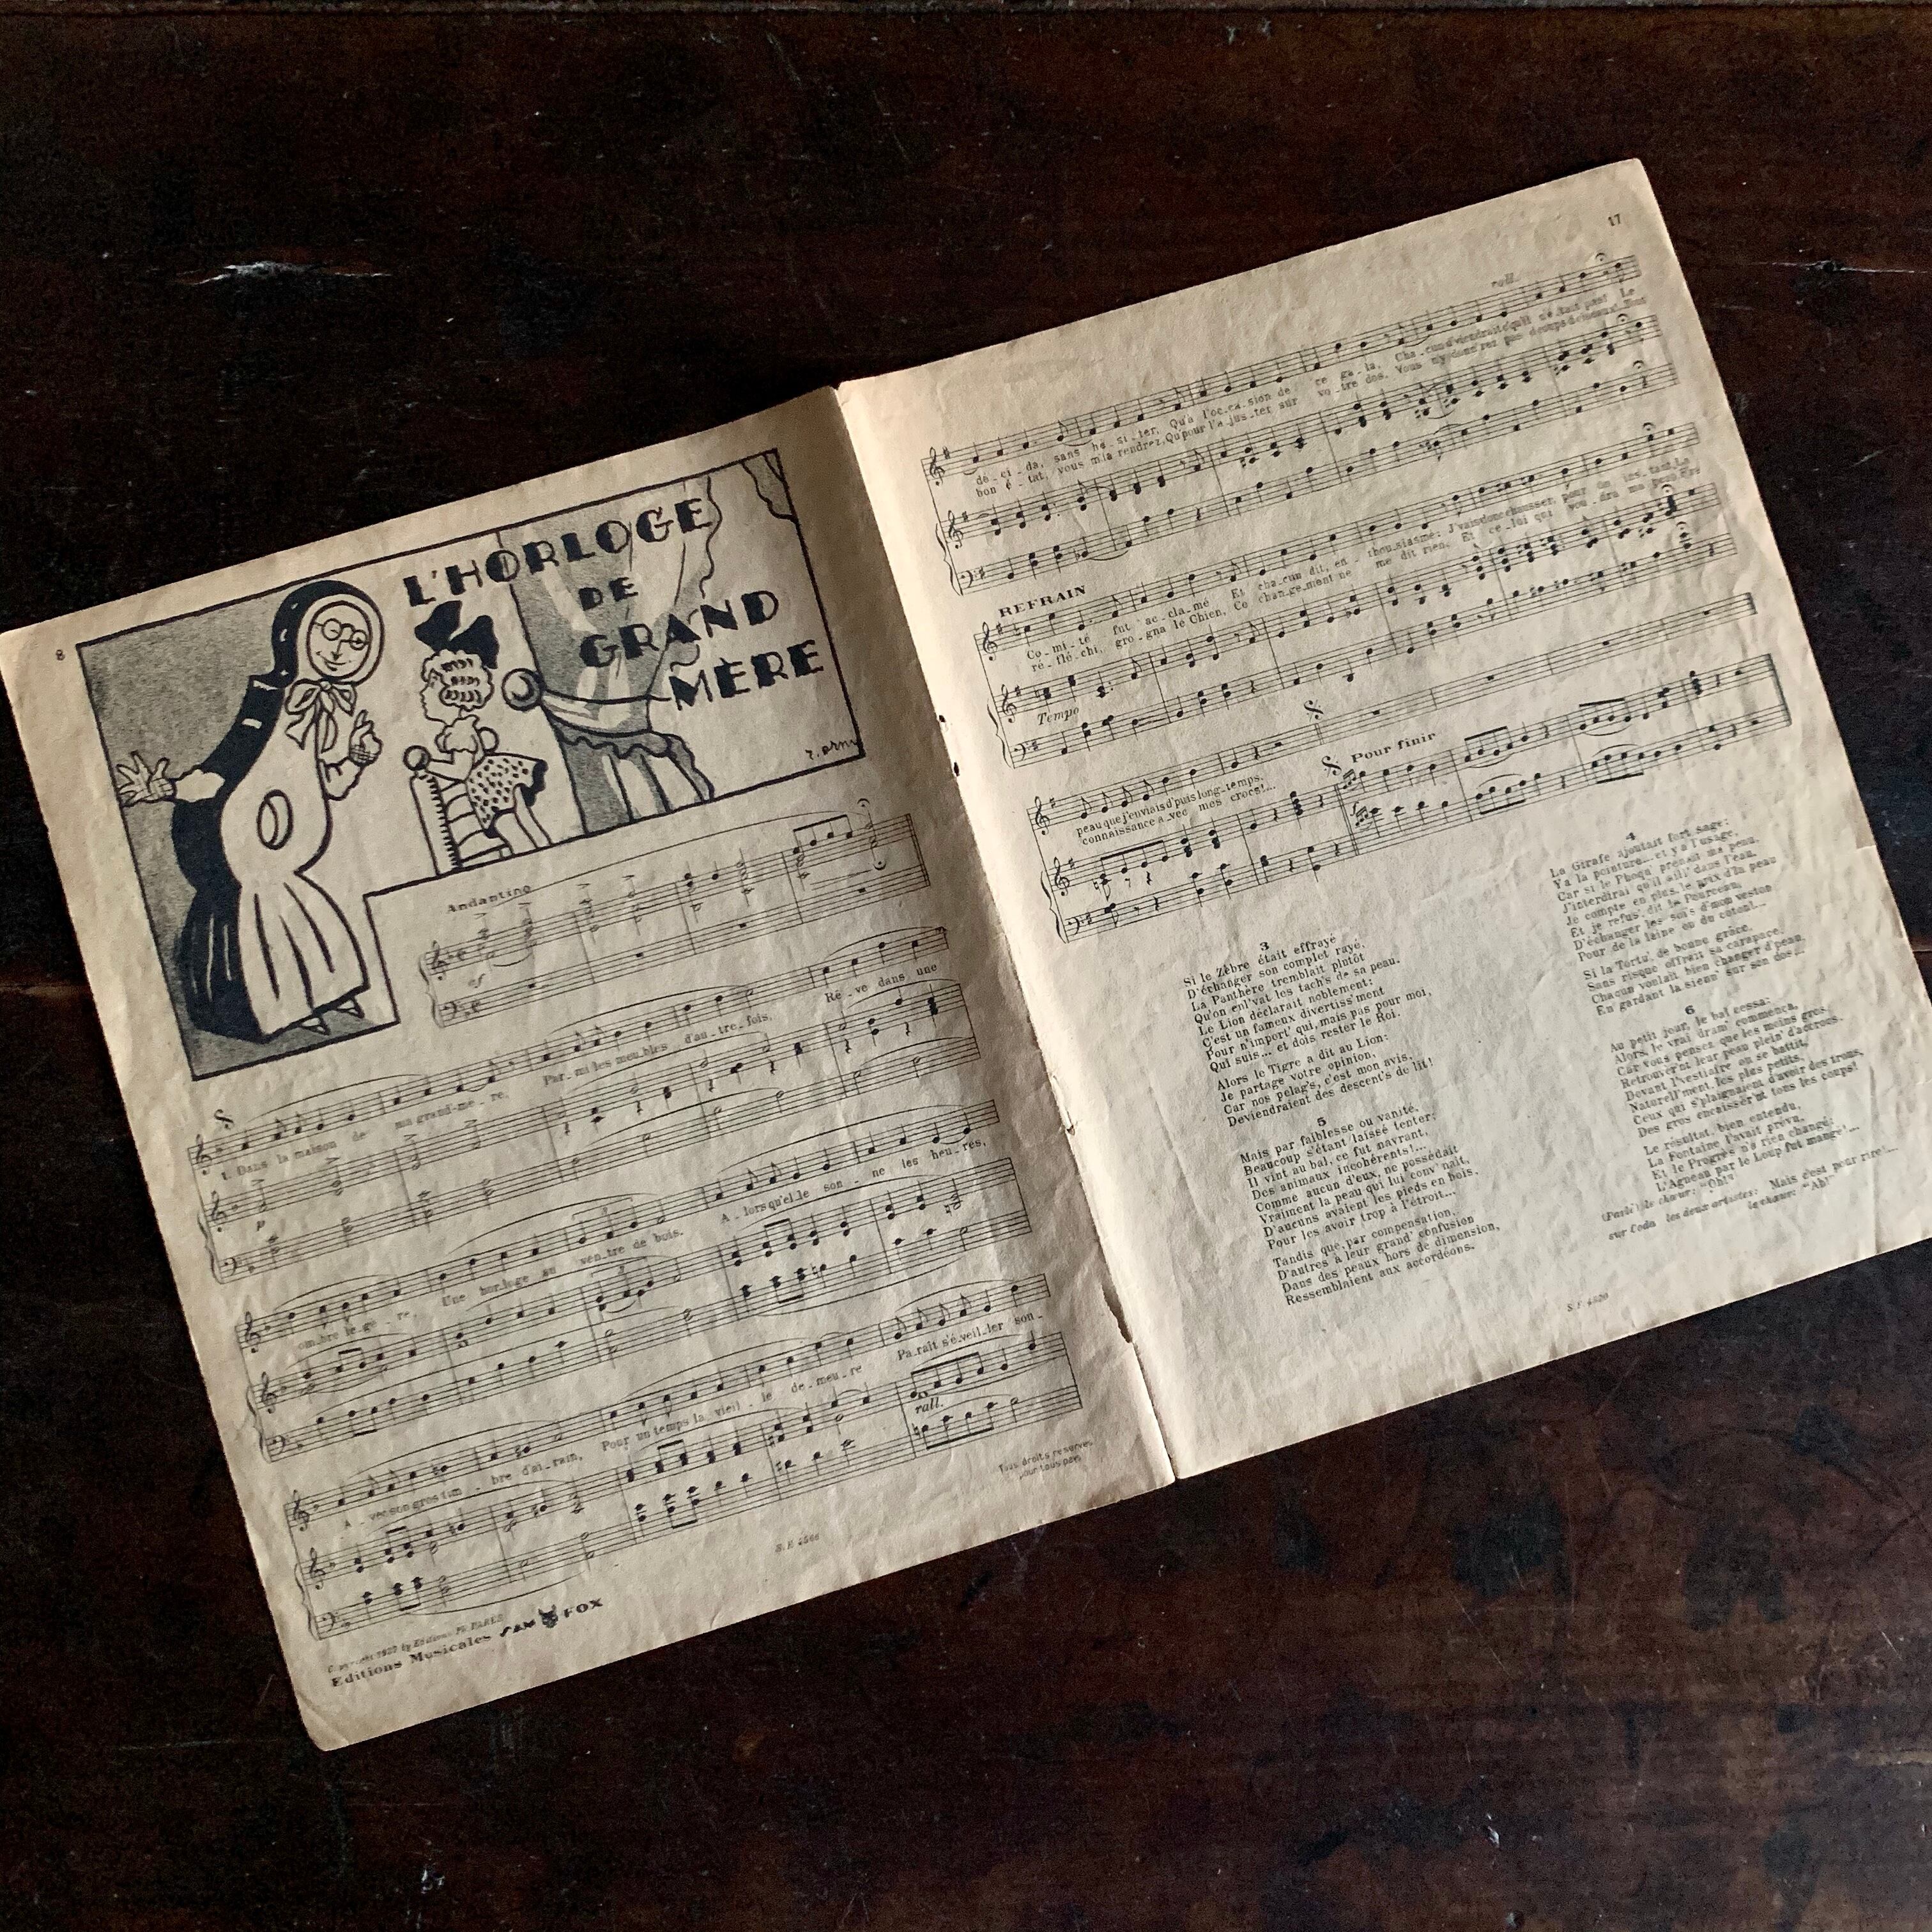 8
L'HORLOGE
DE
GRAND
MÈRE
Andantino
sf
1. Dans la maison de ma grand-mè_re, Par_mi les meu_bles d'au_tre_fois, Rê_ve dans une
p
om_bre lé_gè_re, Une hor_loge au ven_tre de bois. A_lors qu'el_le son_ne les heu_res,
A_vec son gros tim_bre d'ai_rain, Pour un temps la vieil_le de_meu_re Pa_raît s'é_veil_ler son_
rall.
Tous droits réservés
pour tous pays
Copyright by Editions PARIS
Editions Musicales SAM FOX
17
rall.
dé_ci_da, sans hé_si_ter, Qu'à l'oc_ca_sion de ce ga_la, Cha_cun Le
bon é_tat, vous m'la rendrez, Qu'pour l'a_jus_ter sur vo_tre dos, Vous n'y donn'rez pas
REFRAIN
Co_mi_té fut ac_cla_mé Et cha_cun dit, en_thou_siasmé: J'vais donc chausser, pour un ins_tant, La
ré_flé_chi, gro_gna le Chien, Ce chan_ge_ment ne me dit rien. Et ce_lui qui vou_dra ma peau
Tempo
peau que j'enviais d'puis long_temps.
connaissance a_vec mes crocs!...
Pour finir
3
Si le Zèbre était effrayé
D'échanger son complet rayé,
La Panthère tremblait plutôt
Qu'on enl'vât les tach's de sa peau.
Le Lion déclarait noblement:
C'est un fameux divertiss'ment
Pour n'import' qui, mais pas pour moi,
Qui suis... et dois rester le Roi.
Alors le Tigre a dit au Lion:
Je partage votre opinion,
Car nos pelag's, c'est mon avis,
Deviendraient des descent's de lit!
5
Mais par faiblesse ou vanité,
Beaucoup s'étant laissé tenter;
Il vint au bal, ce fut navrant,
Des animaux incohérents!...
Comme aucun d'eux, ne possédait
Vraiment la peau qui lui conv'nait,
D'aucuns avaient les pieds en bois,
Pour les avoir trop à l'étroit...
Tandis que, par compensation,
D'autres à leur grand' confusion
Dans des peaux hors de dimension,
Ressemblaient aux accordéons.
4
La Girafe ajoutait fort sage:
Y'a la pointure... et y'a l'usage,
Car si le Phoqu' prenait ma peau,
J'interdirai qu'il aill' dans l'eau.
Je compte en plus, le prix d'la peau
Et je refus' dit le Pourceau,
D'échanger les soi's d'mon veston
Pour de la laine ou du coton!...
Si la Tortu', de bonne grâce,
Sans risque offrait sa carapace,
Chacun voulait bien changer d'peau,
En gardant la sienn' sur son dos...
6
Au petit jour, le bal cessa:
Alors, le vrai dram' commença,
Car vous pensez que les moins gros,
Retrouvèr'nt leur peau plein' d'accrocs.
Devant l'vestiaire on se battit,
Naturell'ment, les plus petits,
Ceux qui s'plaignaient d'avoir des trous,
Des gros encaissèr'nt tous les coups!
Le résultat, bien entendu,
La Fontaine l'avait prévu,
Et le Progrès n'a rien changé:
L'Agneau par le Loup fut mangé!...
(Parlé) le chœur: "Oh!"
sur Coda les deux artistes: Mais c'est pour rire!...
le chœur: "Ah!"